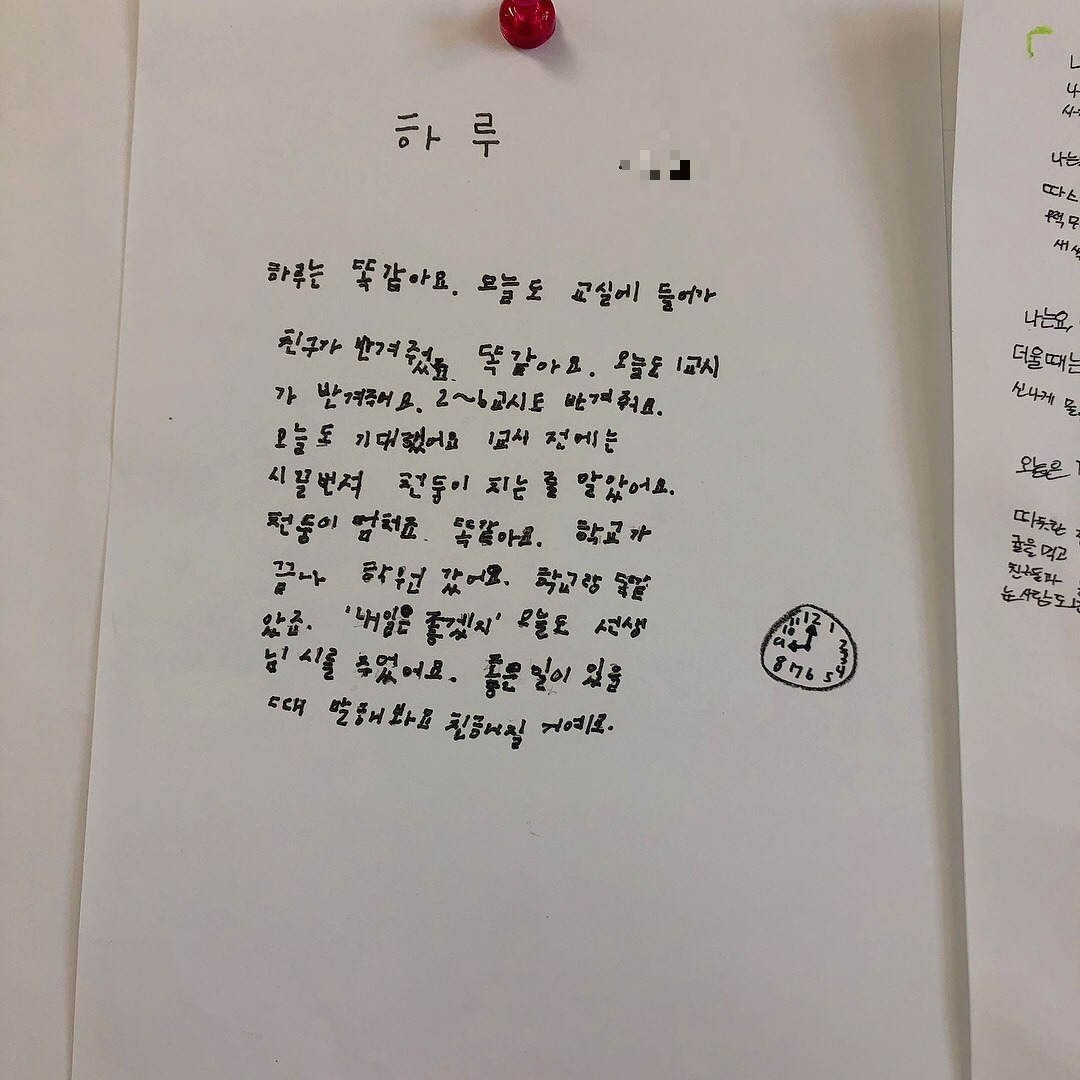 하루
하루는 똑같아요. 오늘도 교실에 들어가
친구가 반겨줬죠. 똑같아요. 오늘도 1교시
가 반겨줘어요. 2~6교시도 반겨줘요.
오늘도 기대했어요 1교시 전에는
시끌번적 천둥이 치는 줄 알았어요.
천둥이 멈춰죠. 똑같아요. 학교가
끝나 학원 갔어요. 학교랑 똑같
았죠. '내일은 좋겠지' 오늘도 선생
님이 시를 주었어요. 좋은 일이 있을
때 말해봐요 친해질 거예요.
11 12 1
10 2
9 3
8 7 6 5 4
나는요,
더울때는
신나게
오늘은
따뜻한
귤을 먹고
친구들과
눈사람도